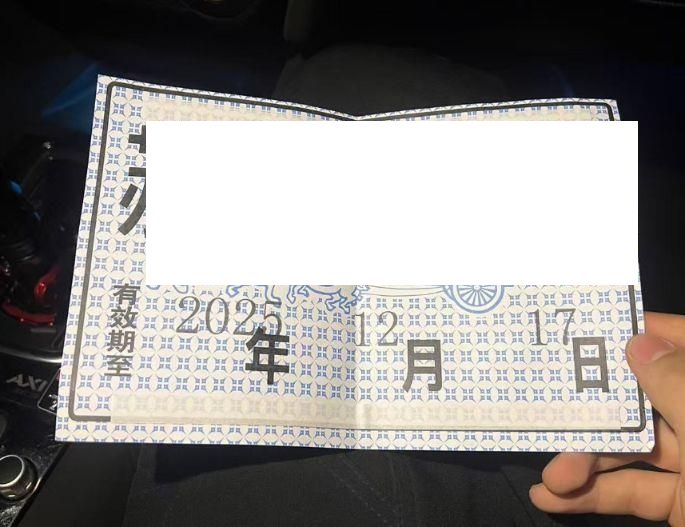 有效期至 2025年 12月 17日